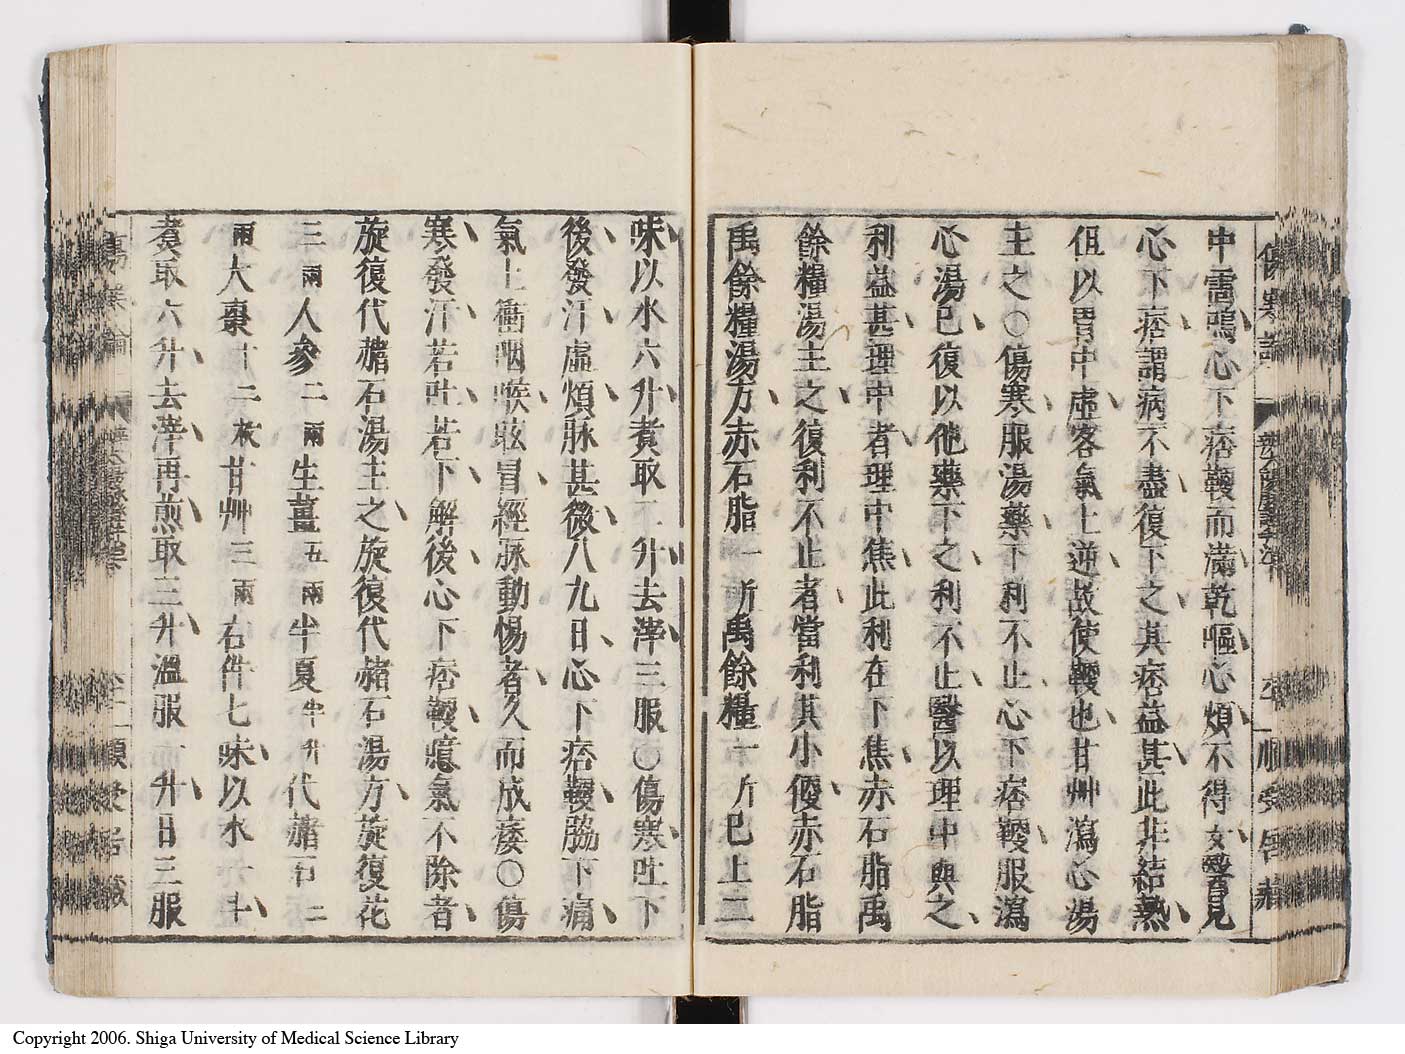 中雷鳴心下痞鞕而滿乾嘔心煩不得安醫見
心下痞謂病不盡復下之其痞益甚此非結熱
但以胃中虛客氣上逆故使鞕也甘艸瀉心湯
主之○傷寒服湯藥下利不止心下痞鞕服瀉
心湯已復以他藥下之利不止醫以理中與之
利益甚理中者理中焦此利在下焦赤石脂禹
餘糧湯主之復利不止者當利其小便赤石脂
禹餘糧湯方赤石脂一斤禹餘糧一斤已上二
味以水六升煑取二升去滓三服○傷寒吐下
後發汗虛煩脉甚微八九日心下痞鞕脇下痛
氣上衝咽喉眩冒經脉動惕者久而成痿○傷
寒發汗若吐若下解後心下痞鞕噫氣不除者
旋復代赭石湯主之旋復代赭石湯方旋復花
三兩人參二兩生薑五兩半夏半升代赭石一
兩大棗十二枚甘艸三兩右件七味以水一斗
煑取六升去滓再煎取三升溫服一升日三服
傷寒論
Copyright 2006. Shiga University of Medical Science Library